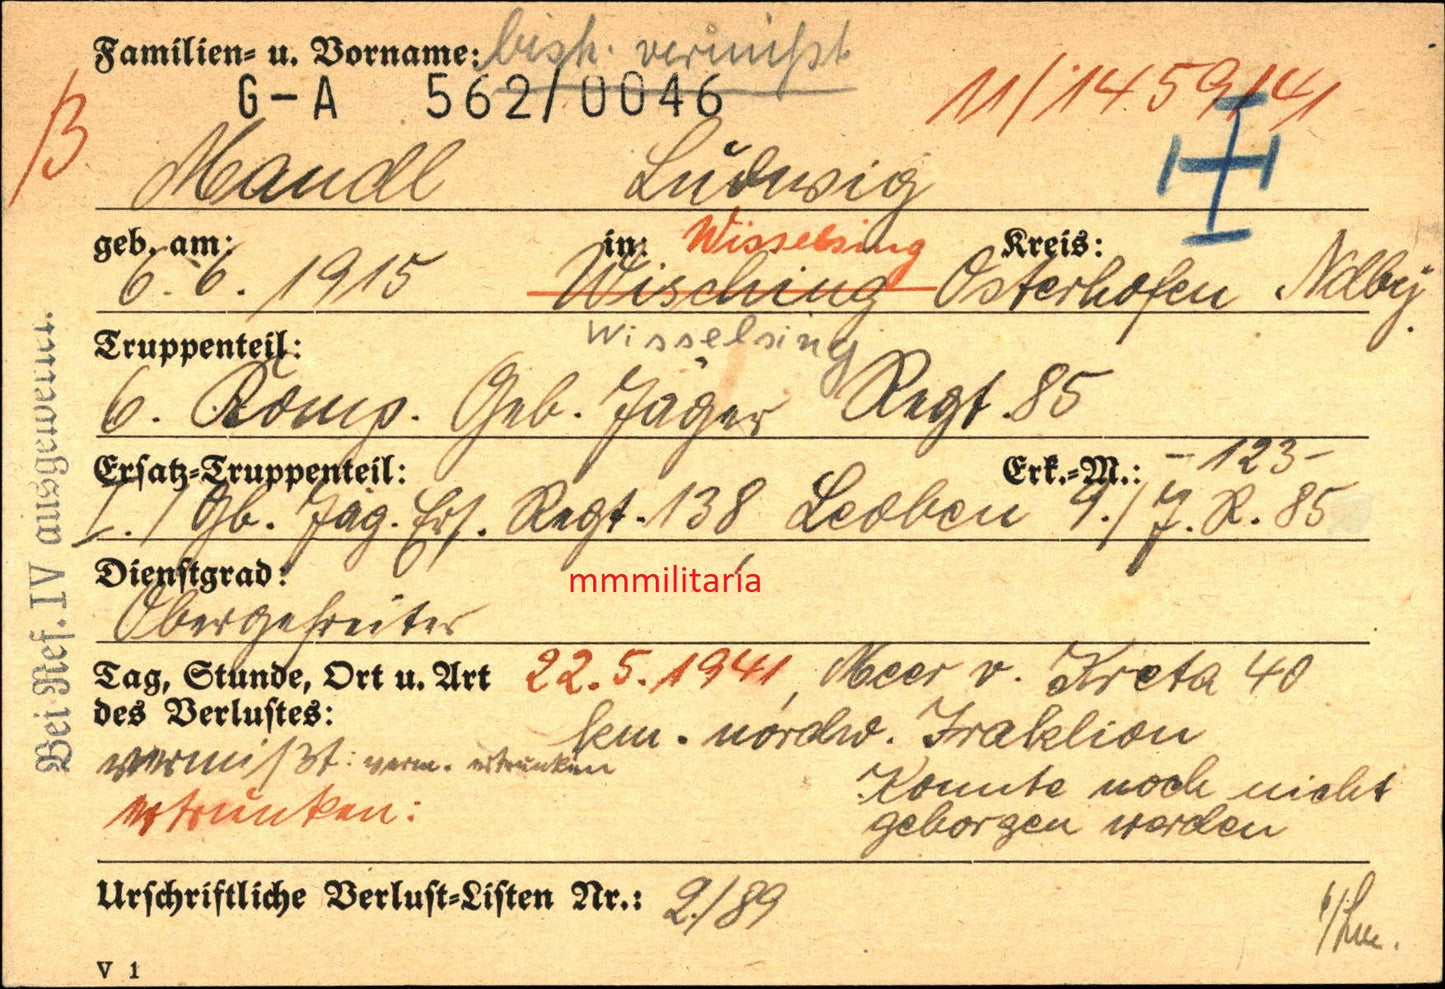 Familien- u. Vorname: bish. vermißt
G-A 562/0046
11/1459/41
B
Mandl Ludwig
geb. am: in: Wisselsing Kreis:
6. 6. 1915 Wisching Osterhofen Ndby.
Wisselsing
Truppenteil:
6. Komp. Geb. Jäger Regt. 85
Ersatz-Truppenteil: Erk.-M.: -123-
I./Gb. Jäg. Ers. Regt. 138 Leoben 9./J.R. 85
Dienstgrad:
mmmilitaria
Obergefreiter
Tag, Stunde, Ort u. Art 22.5.1941, Meer v. Kreta 40
des Verlustes: km. nördw. Iraklion
vermißt: verm. ertrunken
Konnte noch nicht
ertrunken:
geborgen werden
Urschriftliche Verlust-Listen Nr.: 2./89
V 1
Bei Ref. IV ausgewertet.